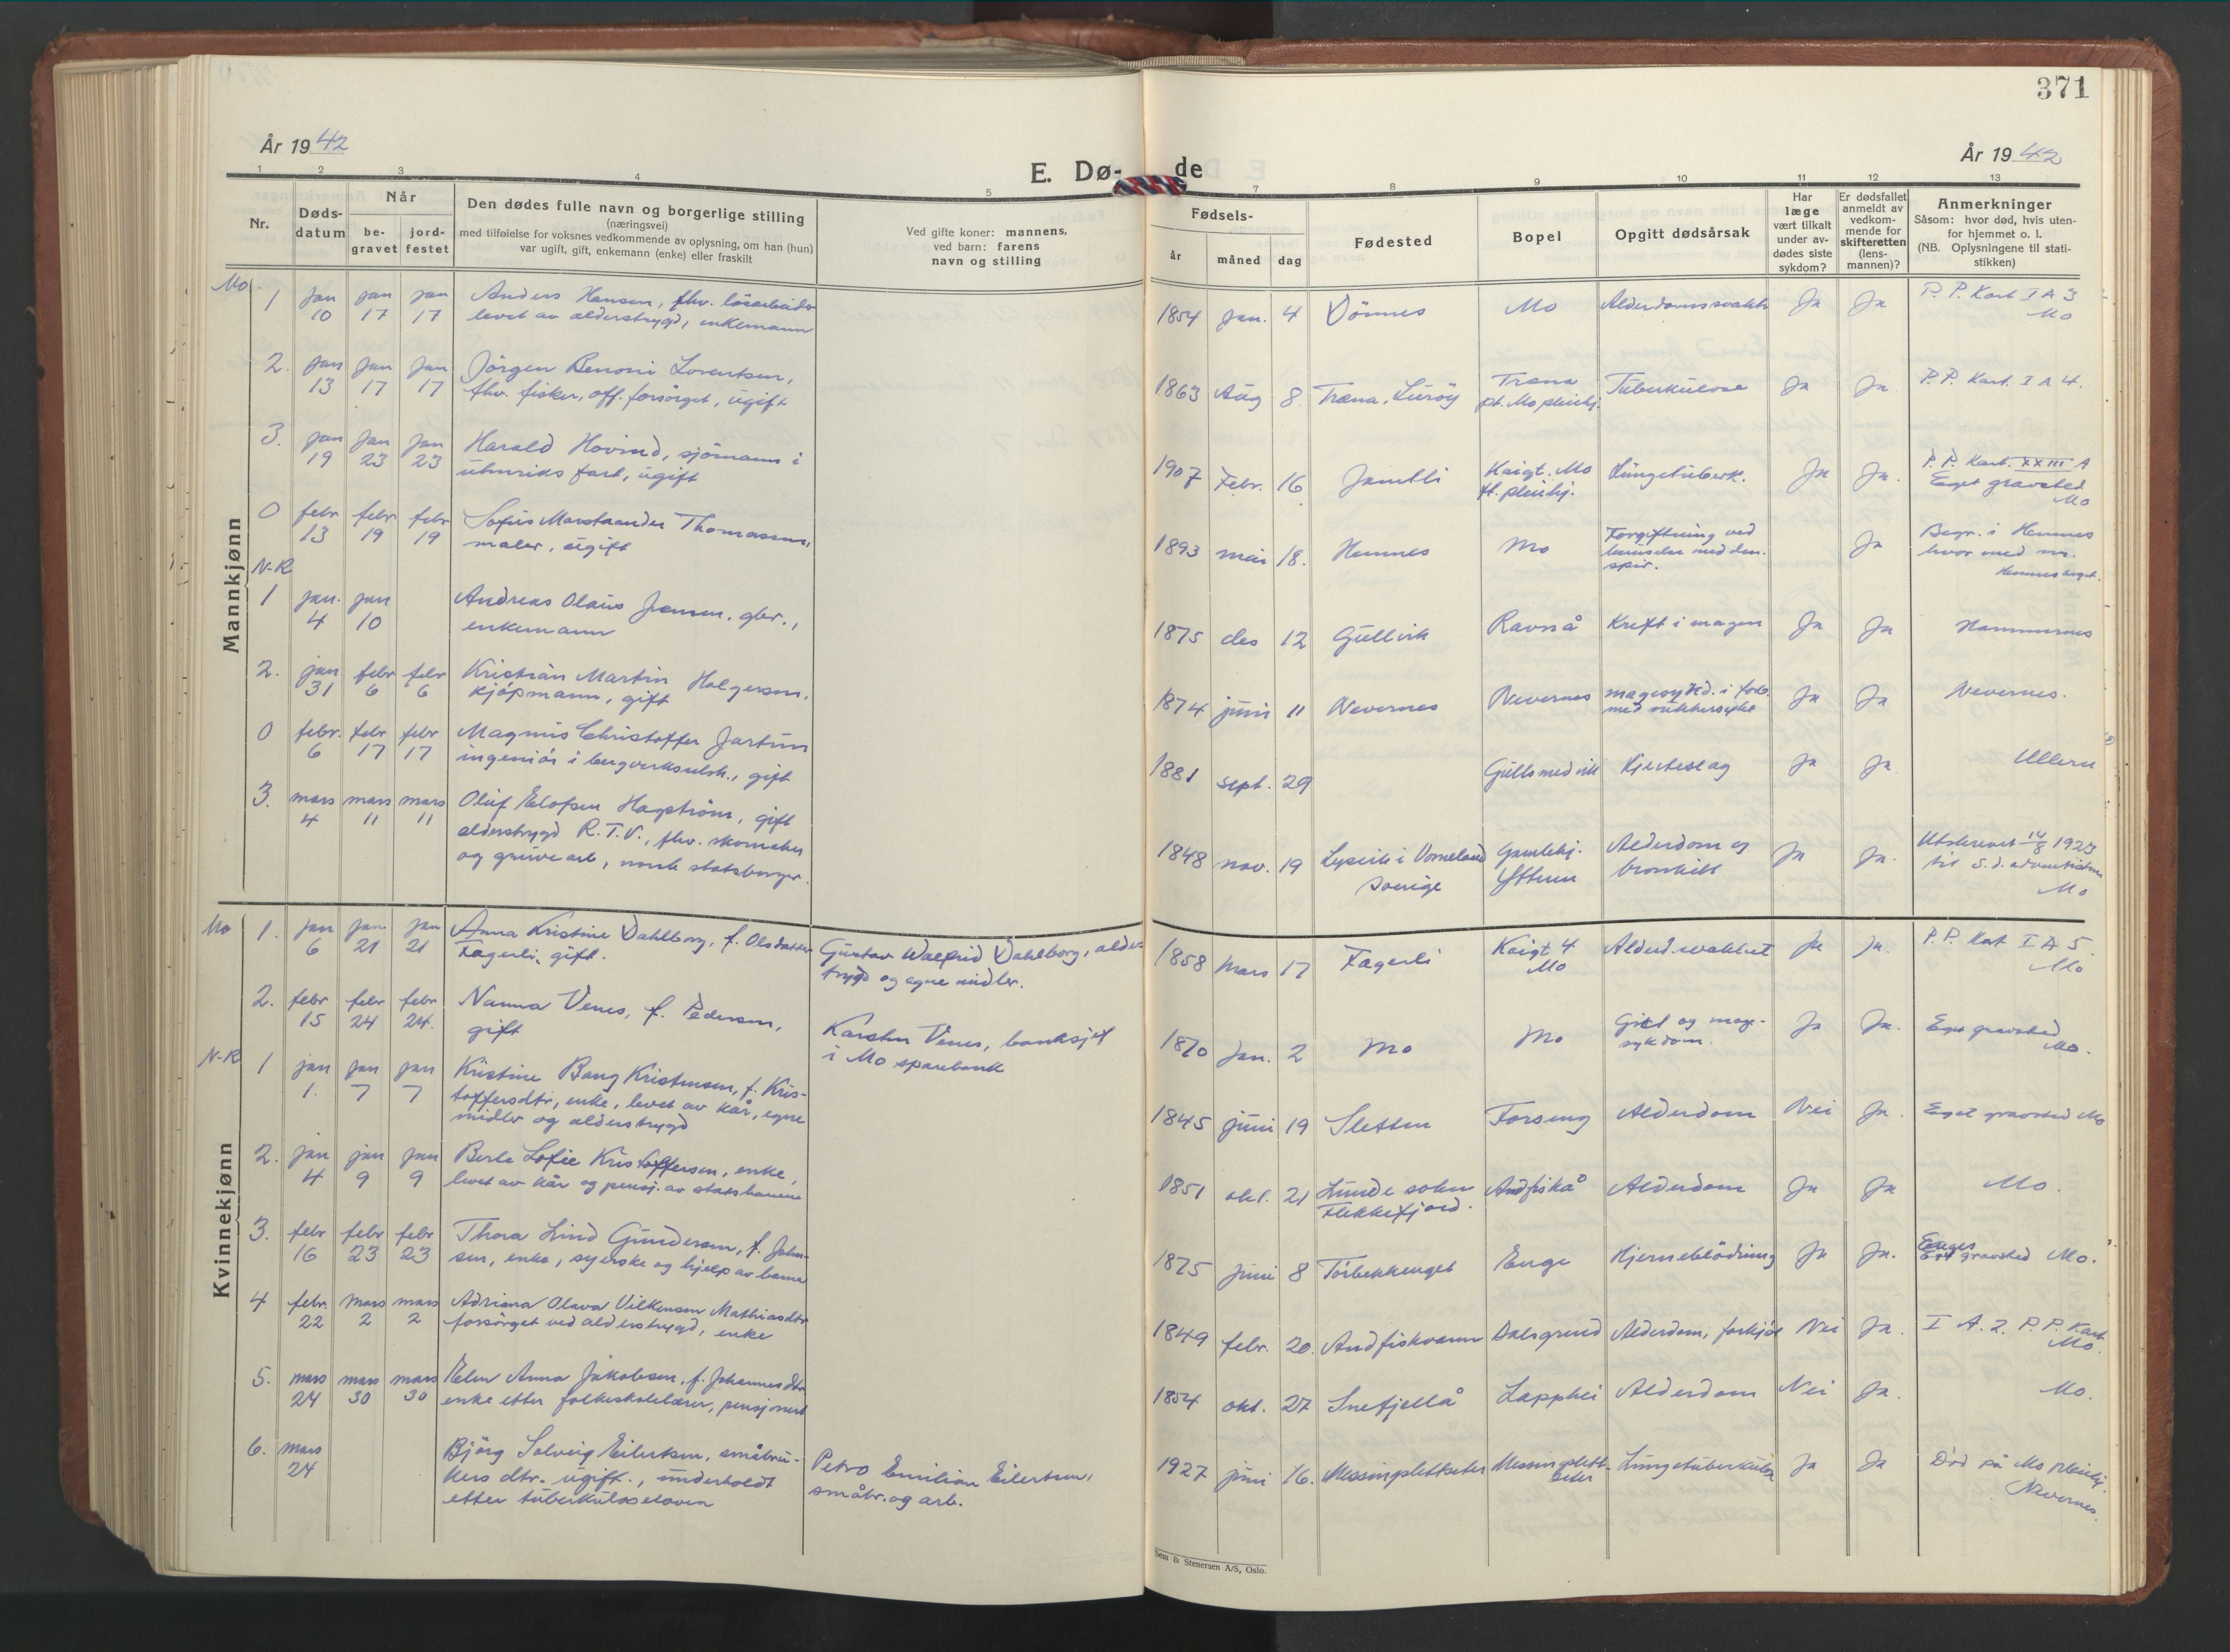 371
År 1942
E. Dø-
de
År 1942
1 2 3 4 5 7 8 9 10 11 12 13
Nr.
Døds-
datum
Når
be-
gravet
jord-
festet
Den dødes fulle navn og borgerlige stilling
(næringsvei)
med tilføielse for voksnes vedkommende av oplysning, om han (hun)
var ugift, gift, enkemann (enke) eller fraskilt
Ved gifte koner: mannens,
ved barn: farens
navn og stilling
Fødsels-
år måned dag
Fødested
Bopel
Opgitt dødsårsak
Har
læge
vært tilkalt
under av-
dødes siste
sykdom?
Er dødsfallet
anmeldt av
vedkom-
mende for
skifteretten
(lens-
mannen)?
Anmerkninger
Såsom: hvor død, hvis uten-
for hjemmet o. l.
(NB. Oplysningene til stati-
stikken)
Mannkjønn
Mo
1 jan 10 jan 17 jan 17 Anders Hansen, fhv. løsarbeider
levet av alderstrygd, enkemann
1854 jan. 4 Dönnes Mo Ja Ja P. P. Kart I A 3
Mo
2. jan 13 jan 17 jan 17 Jörgen Benoni Lorentsen,
fhv. fisker, off. forsörget, ugift
1863 Aug 8. Træna, Luröy Træna
pt. Mo pleiehj. Tuberkulose Ja Ja P. P. Kart. I A 4.
3. jan 19 jan 23 jan 23 Harald Hovind, sjömann i
utenriks fart, ugift
1907 Febr. 16 Jamtli Kaigt. Mo
pleiehj. Lungetuberk. Ja Ja. P. P. Kart. XXIII A
Eget gravsted
Mo
0 febr 13 febr 19 febr 19 Sofus Marstrander Thomassen,
maler, ugift
1893 mai 18. Hemnes Mo Forgiftning ved
med den.
spir. Ja Begr. i Hemnes
hvor med nr.
N-R
1 jan. 4 jan 10 Andreas Olaus Jensen, gbr.,
enkemann
1875 des 12 Gullvik Ravnå Kreft i magen Ja Ja
2. jan 31 febr 6 febr 6 Kristian Martin Holgersen,
kjöpmann, gift
1874 juni 11 Nevernes Nevernes magesykd. i forb.
med sukkersyke Ja Ja Nevernes.
0 febr. 6 febr 17 febr 17 Magnus Christoffer Jartun
ingeniör i bergverkselsk., gift
1881 sept. 29 Gullsmedvik Hjerteslag Ja Ja Ullern
3. mars 4 mars 11 mars 11 Oluf Elofsen Hagström, gift
alderstrygd R.T.V., fhv. skomaker
og gruvearb, norsk statsborger.
1848 nov. 19 i
Sverige Gamlehj.
Ytteren Alderdom og
bronkitt Ja Ja. Utskrevet 14/8 1923
til s. d. adventistene
Mo
Kvinnekjønn
Mo
1. jan 6 jan 21 jan 21 Anna Kristine Dahlborg, f. Olsdatter
Fagerli, gift.
Gustav Walfrid Dahlborg, alders
trygd og egne midler.
1858 Mars 17 Fagerli Kaigt 4
Mo Alderd.svakhet Ja Ja. P. P. Kart I A 5.
Mo
2. febr 15 febr 24 febr 24. Nanna Venes, f. Pedersen,
gift
Karsten Venes, banksjef
i Mo sparebank
1870 Jan. 2 Mo Mo Gikt og mage-
sykdom. Ja Ja. Eget gravsted
Mo.
N-R
1 jan 1. jan 7 jan 7 Kristine Bang Kristensen, f. Kris-
toffersdtr, enke, levet av kår, egne
midler og alderstrygd
1845 juni 19 Sletten Forseng Alderdom Nei Ja. Eget gravsted Mo
2. jan 4 jan 9 jan 9 Berte Sofie Kristoffersen, enke,
levet av kår og pensj. av statsbanene
1851 okt. 21 Lunde sokn
Flekkefjord. Andfiskå Alderdom Ja Ja Mo.
3. febr 16 febr 23 febr 23 Thora Lind Gundersen, f. John-
sen, enke, syerske og hjelp av barna
1875 Juni 8 Torbekkenget Enge Hjerneblödning Ja Ja. Enges
gravsted Mo.
4 febr. 22 mars 2 mars 2 Adriana Olava Vilkensen Mathiasdtr
forsörget ved alderstrygd, enke
1849 febr. 20. Andfiskvann Dalsgrend Alderdom, forkjöl Nei Ja. I A. 2. P. P. Kart.
Mo.
5. mars 24 mars 30 mars 30 Elen Anna Jakobsen, f. Johannesdtr
enke etter folkeskolelærer, pensjonert
1854 okt. 27 Snefjellå Lapphei Alderdom Nei Ja. Mo.
6. mars 24 Björg Solveig Eilertsen, småbru-
kers dtr. ugift., underholdt
etter tuberkuloseloven
Petro Emilian Eilertsen,
småbr. og arb.
1927 juni 16. Messingslettseter Messingslett-
seter Lungetuberkulose Ja Ja Död på Mo pleiehj.
Nevernes.
Sem & Stenersen A/S, Oslo.